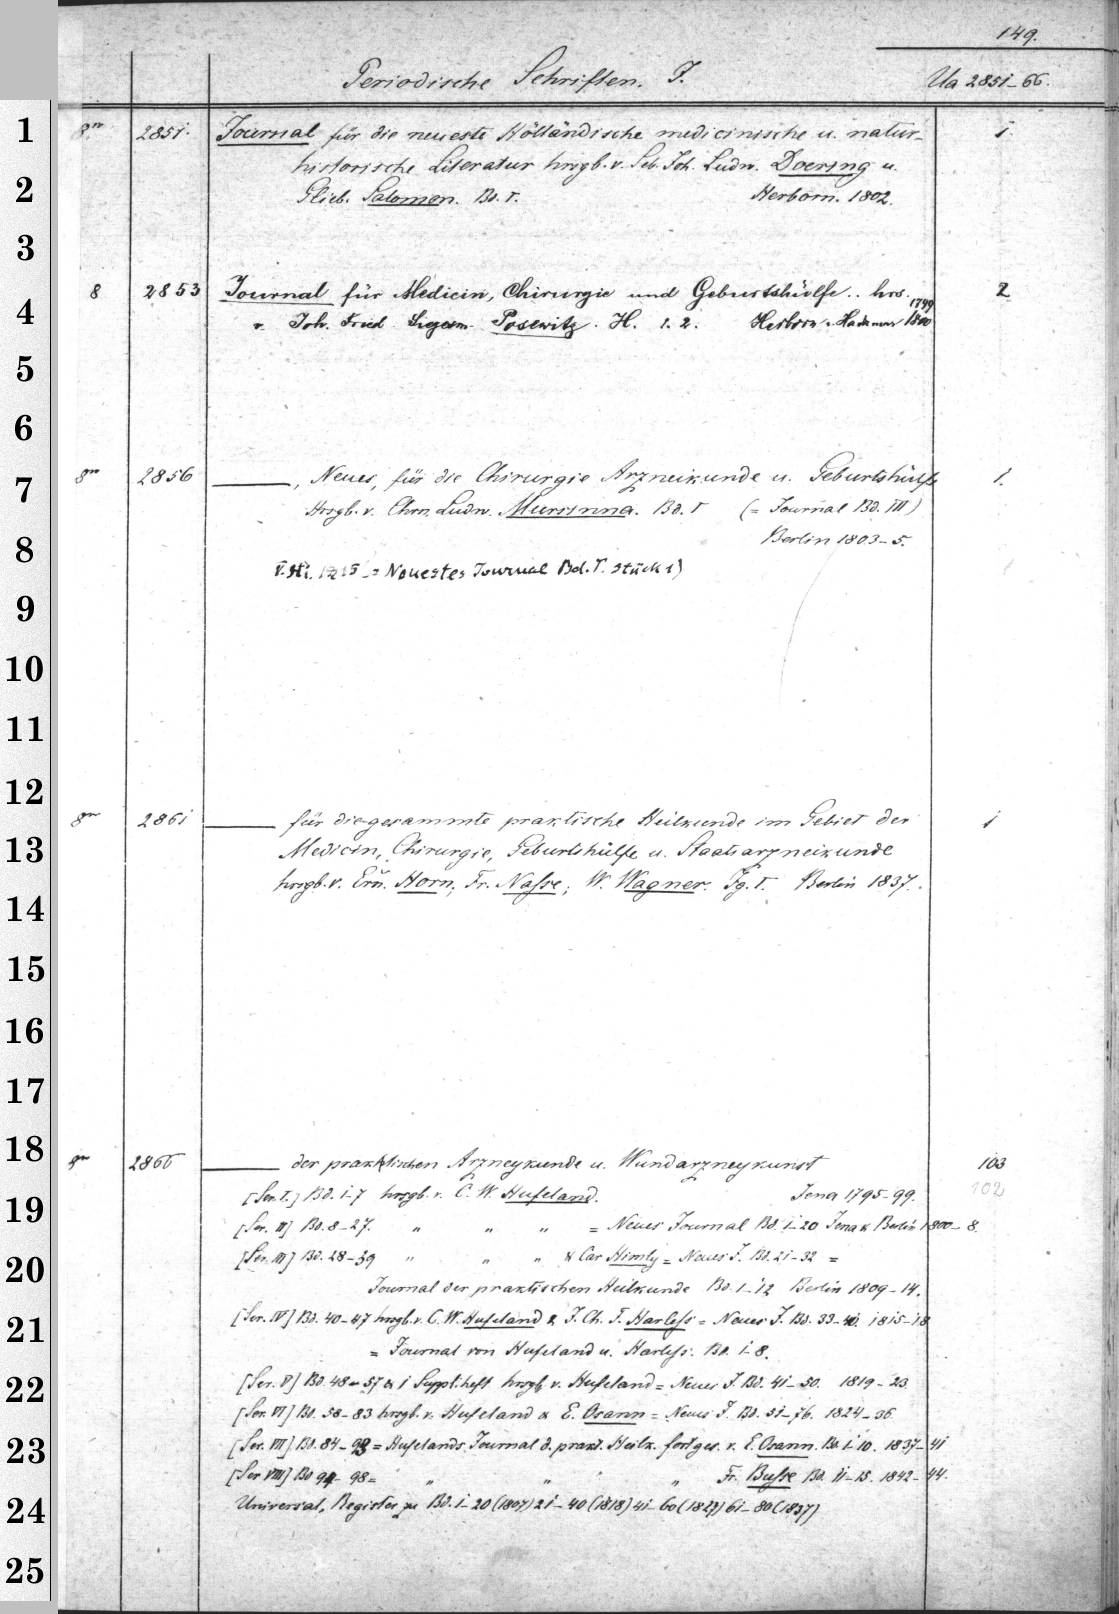 149.
Periodische Schriften. J. Ua 2851-66.
8° 2851. Journal für die neueste Holländische medicinische u. natur- 1.
historische Literatur hrsgb. v. Seb. Joh. Ludw. Doering u.
Glieb. Salomon. Bd. I. Herborn. 1802.
8 2853 Journal für Medicin, Chirurgie und Geburtshülfe.. hrs. 2
v. Joh. Fried. Siegesm. Posewitz. H. 1. 2. Herborn u. Hadamar 1799 1800
8° 2856 ——, Neues, für die Chirurgie Arzneikunde u. Geburtshülfe 1.
Hrsgb. v. Chrn. Ludw. Mursinna. Bd. I (= Journal Bd. III)
Berlin 1803-5.
= Neuestes Journal Bd. I. Stück 1)
8° 2861 —— für die gesammte praktische Heilkunde im Gebiet der 1
Medicin, Chirurgie, Geburtshülfe u. Staatsarzneikunde
hrsgb. v. Ern. Horn, Fr. Nasse, W. Wagner. Jg. I. Berlin 1837.
8° 2866 —— der praktischen Arzneykunde u. Wundarzneykunst 103
102
[Ser. I.] Bd. 1-7 hrsgb. v. C. W. Hufeland. Jena 1795-99.
[Ser. II] Bd. 8-27. " " " = Neues Journal Bd. 1-20 Jena & Berlin 1800-8
[Ser. III] Bd. 28-39 " " " & Car Himly = Neues J. Bd. 21-32 =
Journal der praktischen Heilkunde Bd. 1-12 Berlin 1809-14.
[Ser. IV] Bd. 40-47 hrsgb. v. C. W. Hufeland & J. Ch. F. Harless = Neues J. Bd. 33-40. 1815-18
= Journal von Hufeland u. Harless. Bd. 1-8.
[Ser. V] Bd. 48-57 & 1 Suppl. heft hrsgb v. Hufeland = Neues J. Bd. 41-50. 1819-23
[Ser. VI] Bd. 58-83 hrsgb. v. Hufeland & E. Osann = Neues J. Bd. 51-76. 1824-36
[Ser. VII] Bd. 84-93 = Hufelands Journal d. prakt. Heilk. fortges. v. E. Osann. Bd. 1-10. 1837-41
[Ser VIII] Bd 94-98 = " " " Fr. Busse Bd. 11-15. 1842-44.
Universal, Register zu Bd. 1-20 (1807) 21-40 (1818) 41-60 (1827) 61-80 (1837)
1
2
3
4
5
6
7
8
9
10
11
12
13
14
15
16
17
18
19
20
21
22
23
24
25